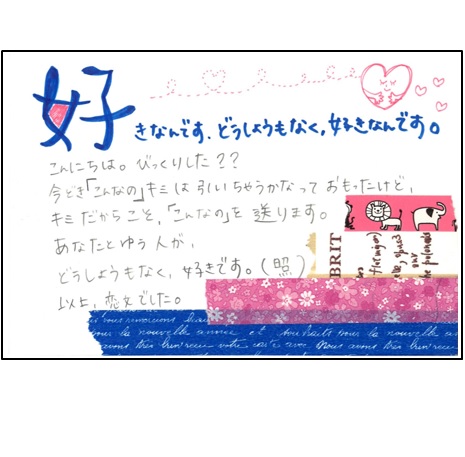 好きなんです。どうしようもなく,好きなんです。
こんにちは。びっくりした??
今どき「こんなの」キミは引いちゃうかなって おもったけど,
キミだからこそ,「こんなの」を 送ります。
あなたとゆう人が,
どうしようもなく,好きです。(照)
以上,恋文でした。
BRIT
la nouvelle année et souhaits pour la nouvelle